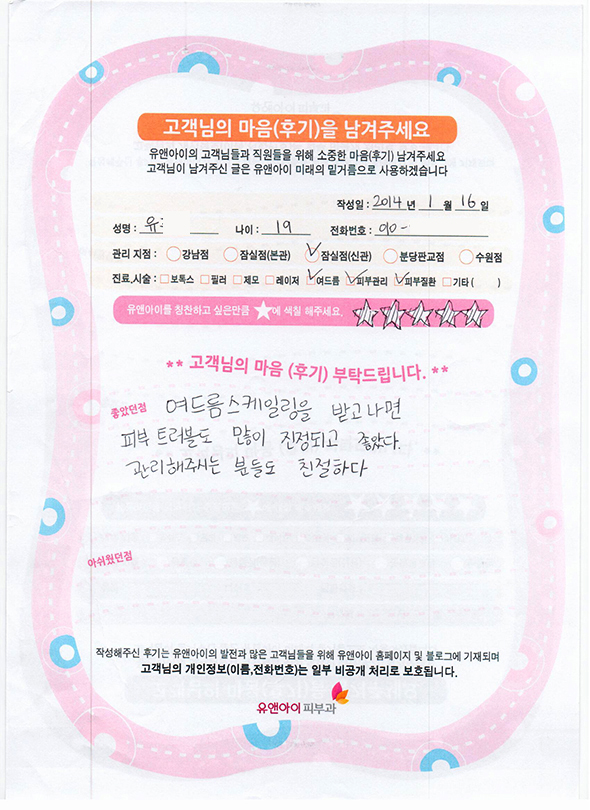 고객님의 마음(후기)을 남겨주세요
유앤아이의 고객님들과 직원들을 위해 소중한 마음(후기) 남겨주세요
고객님이 남겨주신 글은 유앤아이 미래의 밑거름으로 사용하겠습니다
작성일 : 2014 년 1 월 16 일
성명 : 유 나이 : 19 전화번호 : 010 -
관리 지점 : 강남점 잠실점(본관) 잠실점(신관) 분당판교점 수원점
진료,시술 : 보톡스 필러 제모 레이저 여드름 피부관리 피부질환 기타 ( )
유앤아이를 칭찬하고 싶은만큼 ★에 색칠 해주세요.
** 고객님의 마음 (후기) 부탁드립니다. **
좋았던점 여드름스케일링을 받고나면
피부 트러블도 많이 진정되고 좋았다.
관리해주시는 분들도 친절하다
아쉬웠던점
작성해주신 후기는 유앤아이의 발전과 많은 고객님들을 위해 유앤아이 홈페이지 및 블로그에 기재되며
고객님의 개인정보(이름,전화번호)는 일부 비공개 처리로 보호됩니다.
유앤아이 피부과